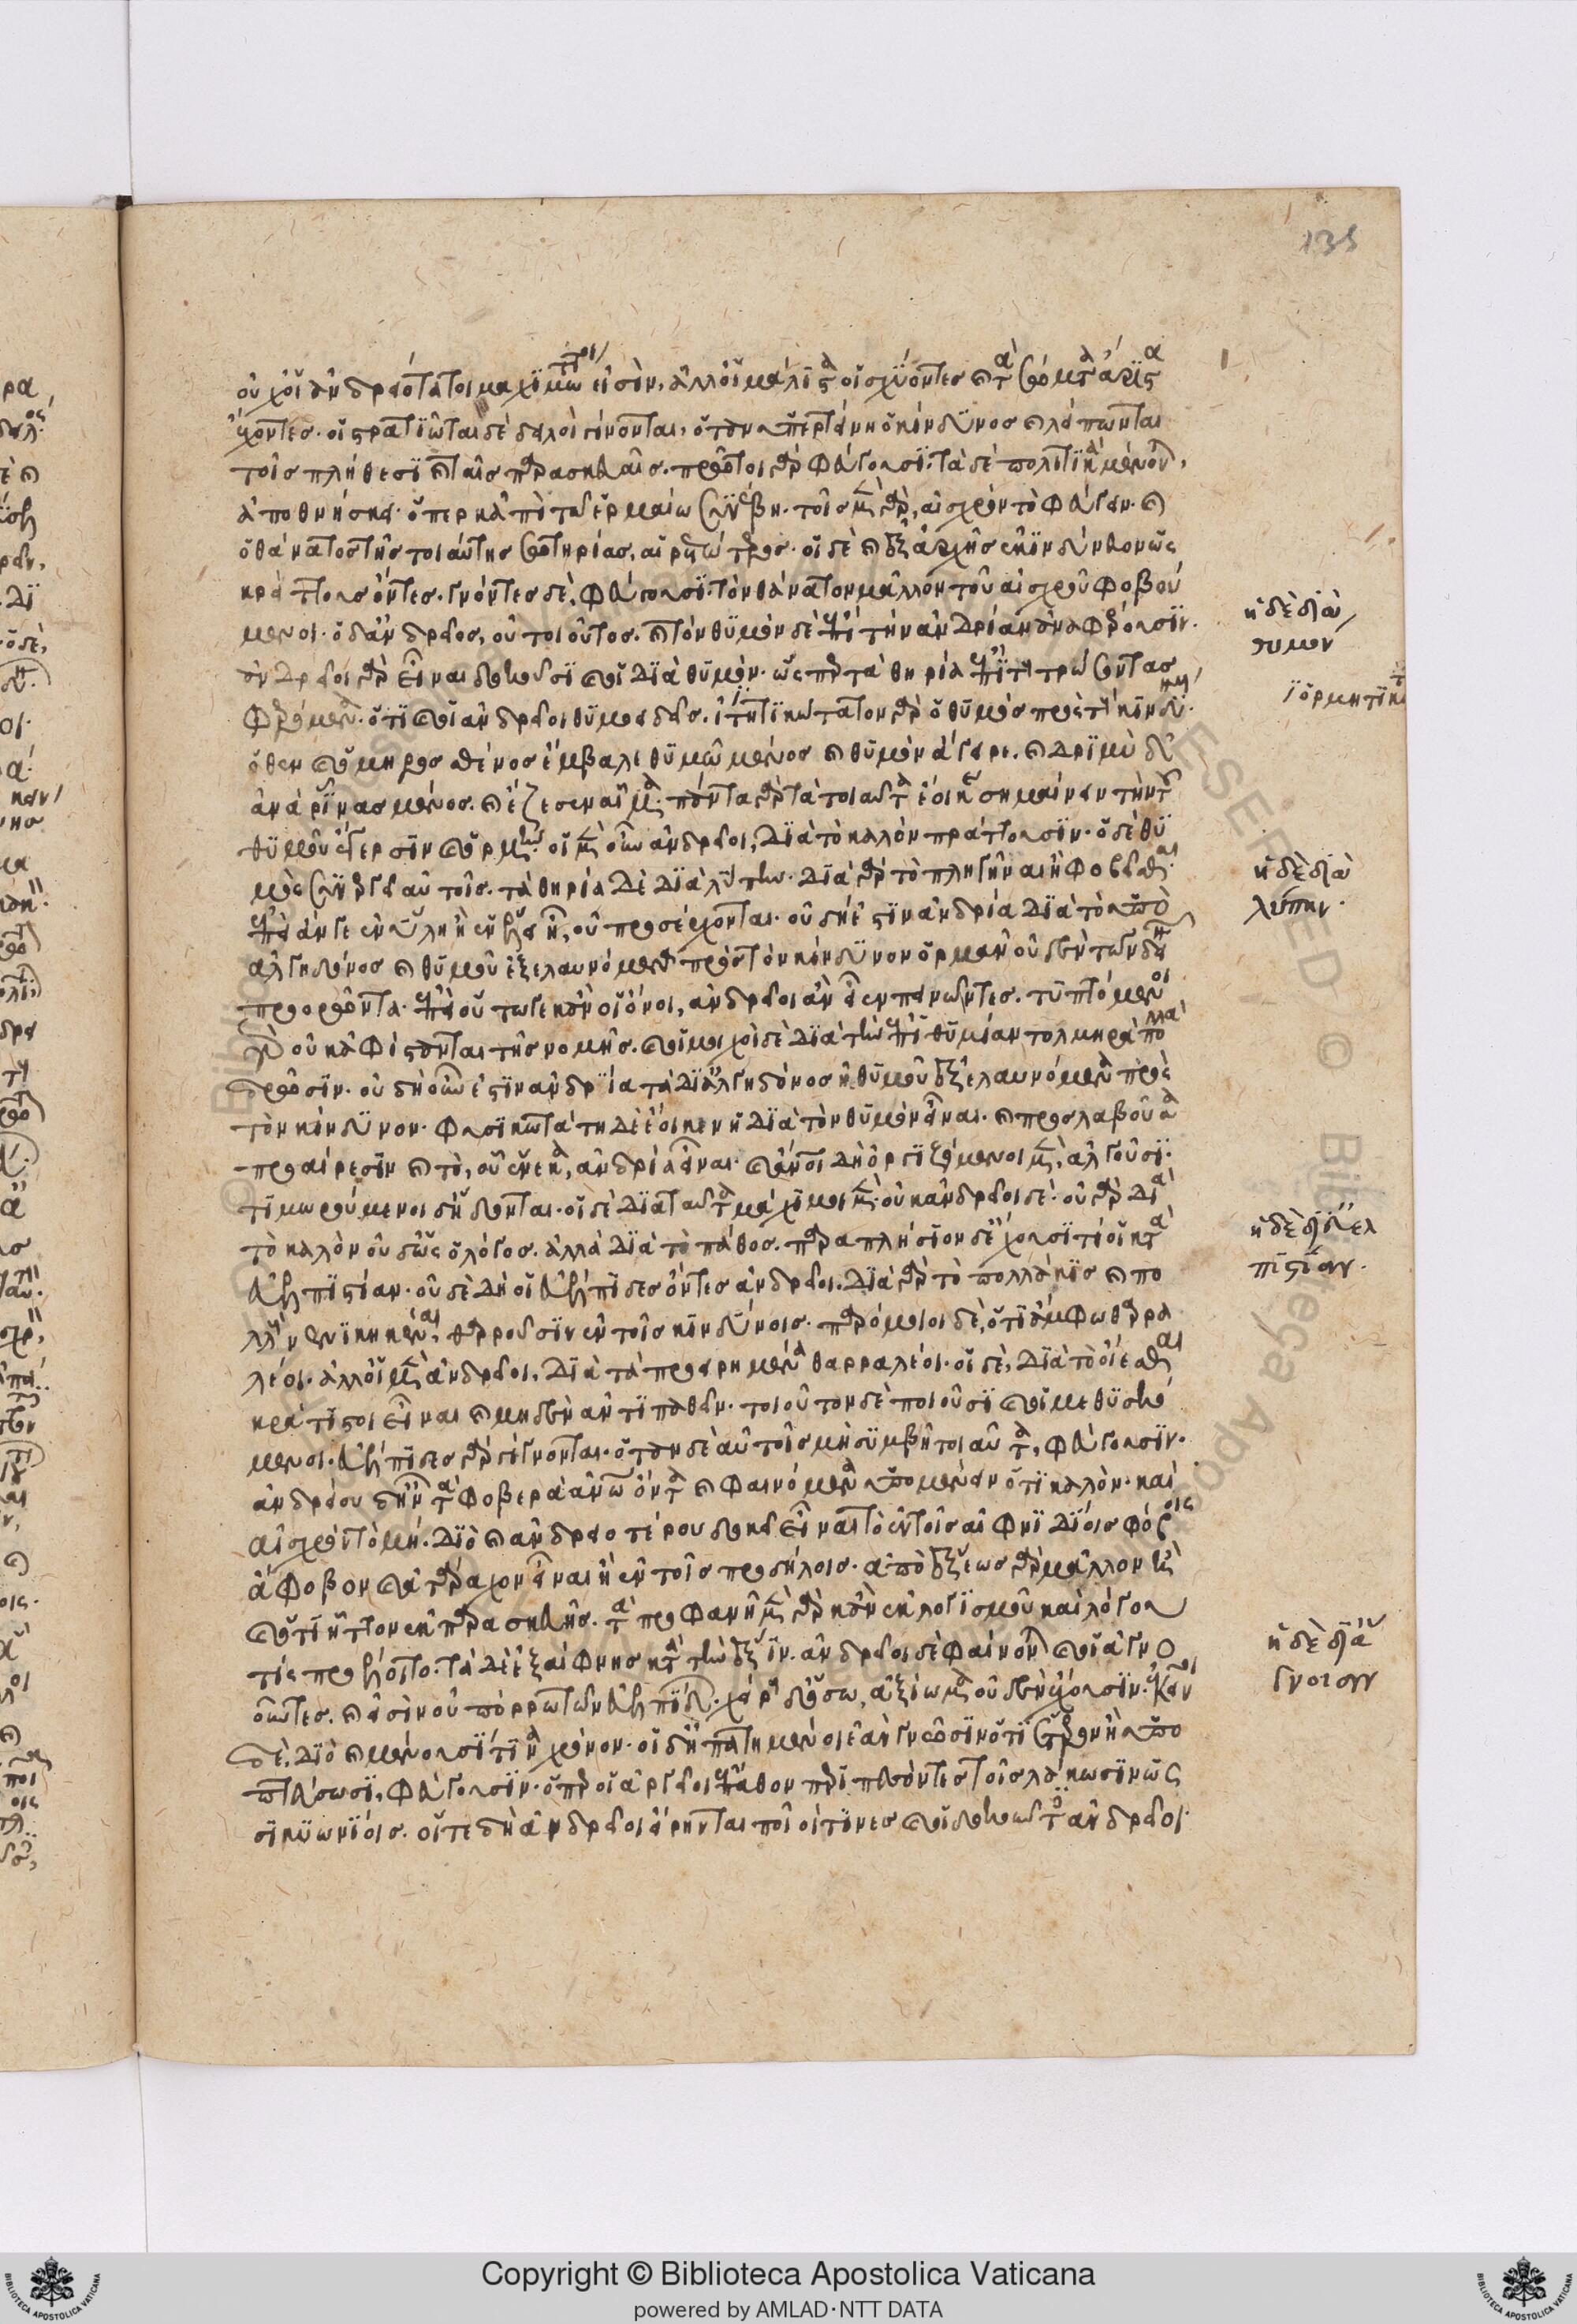 135
οὐχ οἱ ἀνδρειότατοι μαχιμώτατοί εἰσιν, ἀλλ' οἱ μάλιστα ἰσχύοντες καὶ τὰ σώματα ἄριστα
ἔχοντες. οἱ στρατιῶται δὲ δειλοὶ γίνονται, ὅταν ὑπερτείνῃ ὁ κίνδυνος καὶ λείπωνται
τοῖς πλήθεσι καὶ ταῖς παρασκευαῖς. πρῶτοι γὰρ φεύγουσι. τὰ δὲ πολιτικὰ μένοντα,
ἀποθνήσκει. ὅπερ κἀπὶ τῷ ἑρμαίῳ συνέβη. τοῖς μὲν γὰρ, αἰσχρὸν τὸ φεύγειν. καὶ
ὁ θάνατος τῆς τοιαύτης σωτηρίας, αἱρετώτερος. οἱ δὲ καὶ ἐξ ἀρχῆς ἐκινδύνευον ὡς
κρείττους ὄντες. γνόντες δὲ, φεύγουσι. τὸν θάνατον μᾶλλον τοῦ αἰσχροῦ φοβού
μενοι. ὁ δ' ἀνδρεῖος, οὐ τοιοῦτος. καὶ τὸν θυμὸν δὲ ἐπὶ τὴν ἀνδρίαν ἐπιφέρουσιν.
ἀνδρεῖοι γὰρ εἶναι δοκοῦσι καὶ οἱ διὰ θυμὸν. ὥσπερ τὰ θηρία ἐπὶ τοὺς τρώσαντας
φερόμενα. ὅτι καὶ οἱ ἀνδρεῖοι θυμοειδεῖς. ἰτητικώτατον γὰρ ὁ θυμὸς πρὸς τοὺς κινδύνους.
ὅθεν καὶ ὅμηρος σθένος ἔμβαλε θυμῷ μένος καὶ θυμὸν ἔγειρε. καὶ δριμὺ δ'
ἀνὰ ῥῖνας μένος. καὶ ἔζεσεν αἷμα. πάντα γὰρ τὰ τοιαῦτα ἔοικε σημαίνειν τὴν τοῦ
θυμοῦ ἔγερσιν καὶ ὁρμήν. οἱ μὲν οὖν ἀνδρεῖοι, διὰ τὸ καλὸν πράττουσιν. ὁ δὲ θυ
μὸς συνεργεῖ αὐτοῖς. τὰ θηρία δὲ διὰ λύπην. διὰ γὰρ τὸ πληγῆναι ἢ φοβεῖσθαι
ἐπεὶ ἐάν γε ἐν ὕλῃ ἢ ἐν ἕλει ᾖ, οὐ προσέρχονται. οὐ δή ἐστιν ἀνδρία διὰ τὸ ὑπὸ
ἀλγηδόνος καὶ θυμοῦ ἐξελαυνόμενα πρὸς τὸν κίνδυνον ὁρμᾶν οὐδὲν τῶν δεινῶν
προορῶντα. ἐπεὶ οὕτω γε κἂν οἱ ὄνοι, ἀνδρεῖοι ἂν εἶεν πεινῶντες. τυπτόμενοι
γὰρ οὐκ ἀφίστανται τῆς νομῆς. καὶ οἱ μοιχοὶ δὲ διὰ τὴν ἐπιθυμίαν τολμηρὰ πολλὰ
δρῶσιν. οὐ δὴ οὖν ἐστιν ἀνδρία τὰ δι' ἀλγηδόνος ἢ θυμοῦ ἐξελαυνόμενα πρὸς
τὸν κίνδυνον. φυσικωτάτη δὲ ἔοικεν ἡ διὰ τὸν θυμὸν εἶναι. καὶ προσλαβοῦσα
προαίρεσιν καὶ τὸ, οὗ ἕνεκα, ἀνδρία εἶναι. καὶ ἄνθρωποι δὴ ὀργιζόμενοι μὲν, ἀλγοῦσι.
τιμωρούμενοι δ' ἥδονται. οἱ δὲ διὰ ταῦτα μάχιμοι μὲν. οὐκ ἀνδρεῖοι δέ. οὐ γὰρ διὰ
τὸ καλὸν οὐδ' ὡς ὁ λόγος. ἀλλὰ διὰ τὸ πάθος. παραπλήσιον δ' ἔχουσί τι οἱ κατὰ
εὐελπιστίαν. οὐδὲ δὴ οἱ εὐέλπιδες ὄντες ἀνδρεῖοι. διὰ γὰρ τὸ πολλάκις καὶ πο
λλοὺς νενικηκέναι, θαρροῦσιν ἐν τοῖς κινδύνοις. παρόμοιοι δὲ, ὅτι ἄμφω θαρρα
λέοι. ἀλλ' οἱ μὲν ἀνδρεῖοι, διὰ τὰ προειρημένα θαρραλέοι. οἱ δὲ, διὰ τὸ οἴεσθαι
κράτιστοι εἶναι καὶ μηδὲν ἀντιπαθεῖν. τοιοῦτον δὲ ποιοῦσι καὶ οἱ μεθυσκό
μενοι. εὐέλπιδες γὰρ γίγνονται. ὅταν δὲ αὐτοῖς μὴ συμβῇ τοιαῦτα, φεύγουσιν.
ἀνδρείου δ' ἦν τὰ φοβερὰ ἀνθρώπῳ ὄντα καὶ φαινόμενα ὑπομένειν ὅτι καλὸν. καὶ
αἰσχρὸν τὸ μή. διὸ καὶ ἀνδρειοτέρου δοκεῖ εἶναι τὸ ἐν τοῖς αἰφνιδίοις φόβοις
ἄφοβον καὶ ἀτάραχον εἶναι ἢ ἐν τοῖς προδήλοις. ἀπὸ ἕξεως γὰρ μᾶλλον ἦν
καὶ ὅτι ἧττον ἐκ παρασκευῆς. τὰ προφανῆ μὲν γὰρ κἂν ἐκ λογισμοῦ καὶ λόγου
τὶς προέλοιτο. τὰ δὲ ἐξαίφνης κατὰ τὴν ἕξιν. ἀνδρεῖοι δὲ φαίνονται καὶ οἱ ἀγνο
οῦντες. καὶ εἰσὶν οὐ πόρρω τῶν εὐελπίδων. χείρους δ' ὅσῳ, ἀξίωμα οὐδὲν ἔχουσιν. ἐκεῖνοι
δέ. διὸ καὶ μένουσί τινα χρόνον. οἱ δ' ἠπατημένοι ἐὰν γνῶσιν ὅτι ἕτερον ἢ ὑπο
πτεύσωσι, φεύγουσιν. ὅπερ οἱ ἀργεῖοι ἔπαθον περιπεσόντες τοῖς λάκωσιν ὡς
σικυωνίοις. οἵ τε δὴ ἀνδρεῖοι εἴρηνται ποῖοί τινες καὶ οἱ δοκοῦντες ἀνδρεῖοι.
ἡ δὲ διὰ
θυμόν
ὁρμητικ
ἡ δὲ διὰ
λύπην.
ἡ δὲ δι' εὐελ
πιστίαν.
ἡ δὲ δι' ἄ
γνοιαν